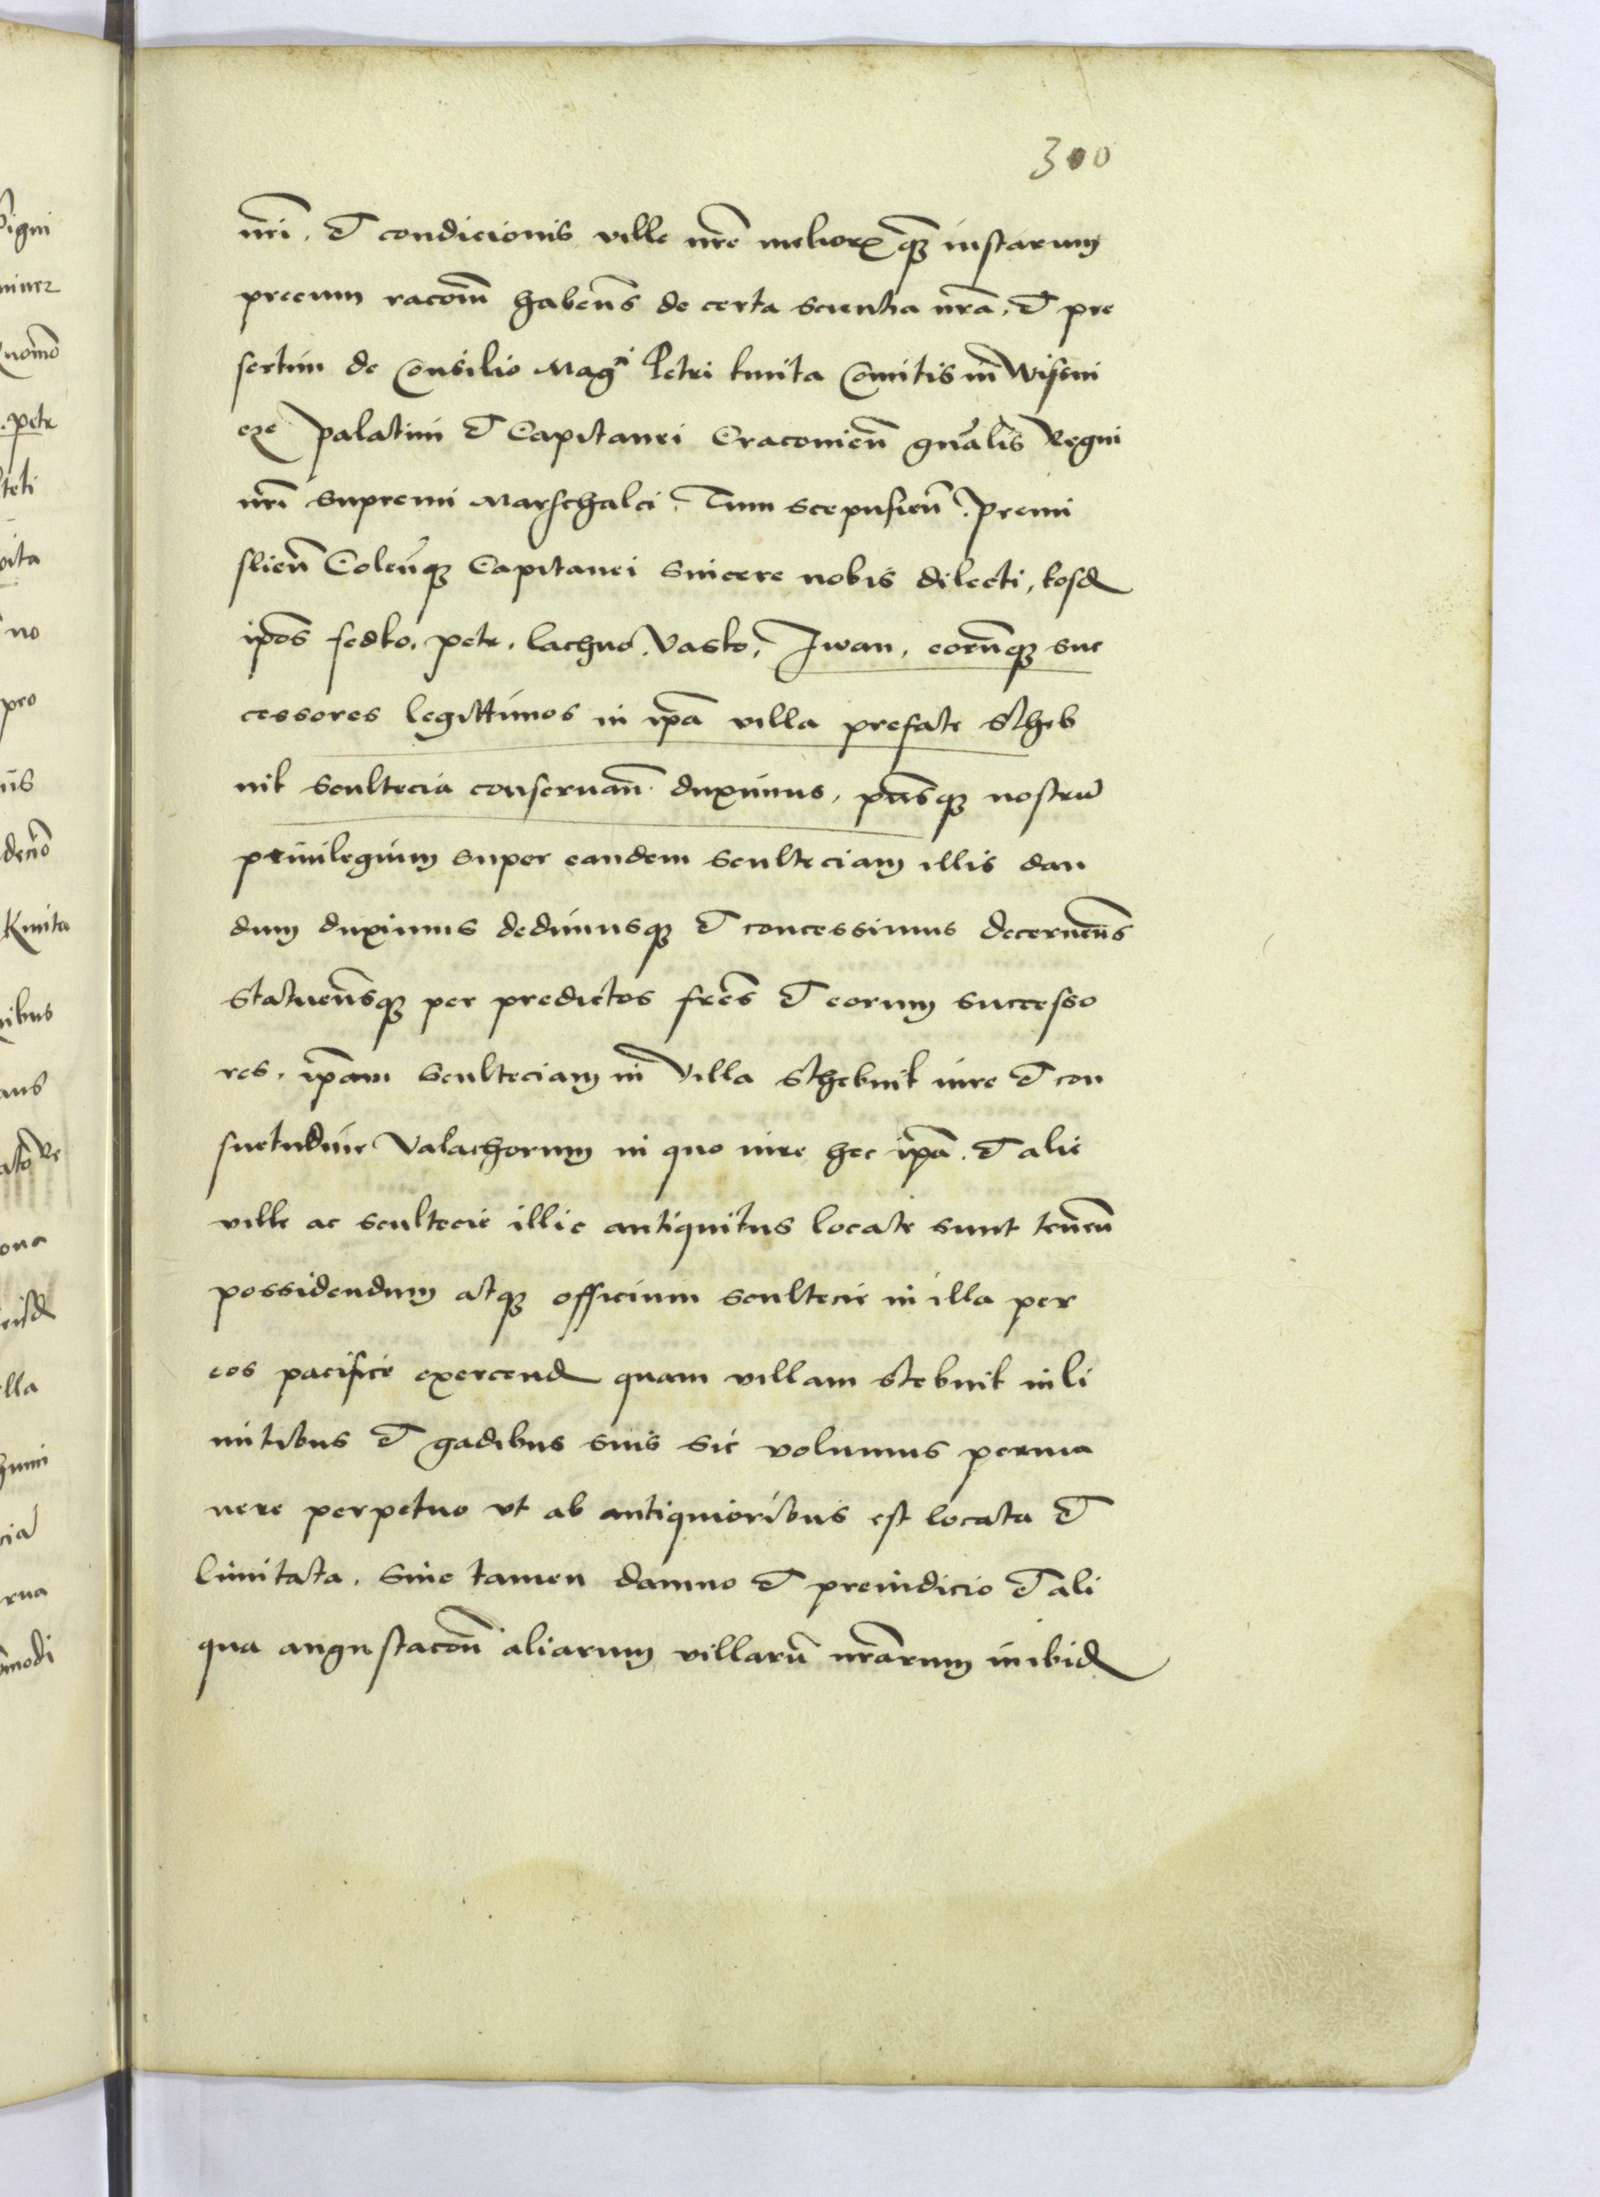 300
nri. et condicionis ville nre melior qz iustarum
precum racom habens de certa scientia nra. et pre
sertim de Consilio Magci Petri kmita Comitis in Wisni
cze palatini et Capitanei Cracovien gnalis Regni
nri supremi Marschalci. Tum scepusien. premi
slien Colenqz Capitanei sincere nobis dilecti, eosd
ipos fedko. petr. lachno. Vasko, Jwan. eorumqz suc
cessores legittimos in ipa villa prefate Stheb
nik scultecia conservan duximus, pnsqz nostru
privilegium super eandem sculteciam illis dan
dum duximus dedimusqz et concessimus decernens
Statuensqz per predictos fres et eorum successo
res. ipam scultеciam in villa Sthebnik iure et con
suetudine Valachorum in quo iure hec ipa. et alie
ville ac sculteciе illic antiquitus locate sunt tenen
possidendum atqz officium scultecie in illa per
eos pacifice exercend quam villam Stebnik in li
mitibus et gadibus suis sic volumus perma
nere perpetuo vt ab antiquioribus est locata et
limitata. Sine tamen damno et preiudicio et ali
qua angustacon aliarum villaru nrarum inibid